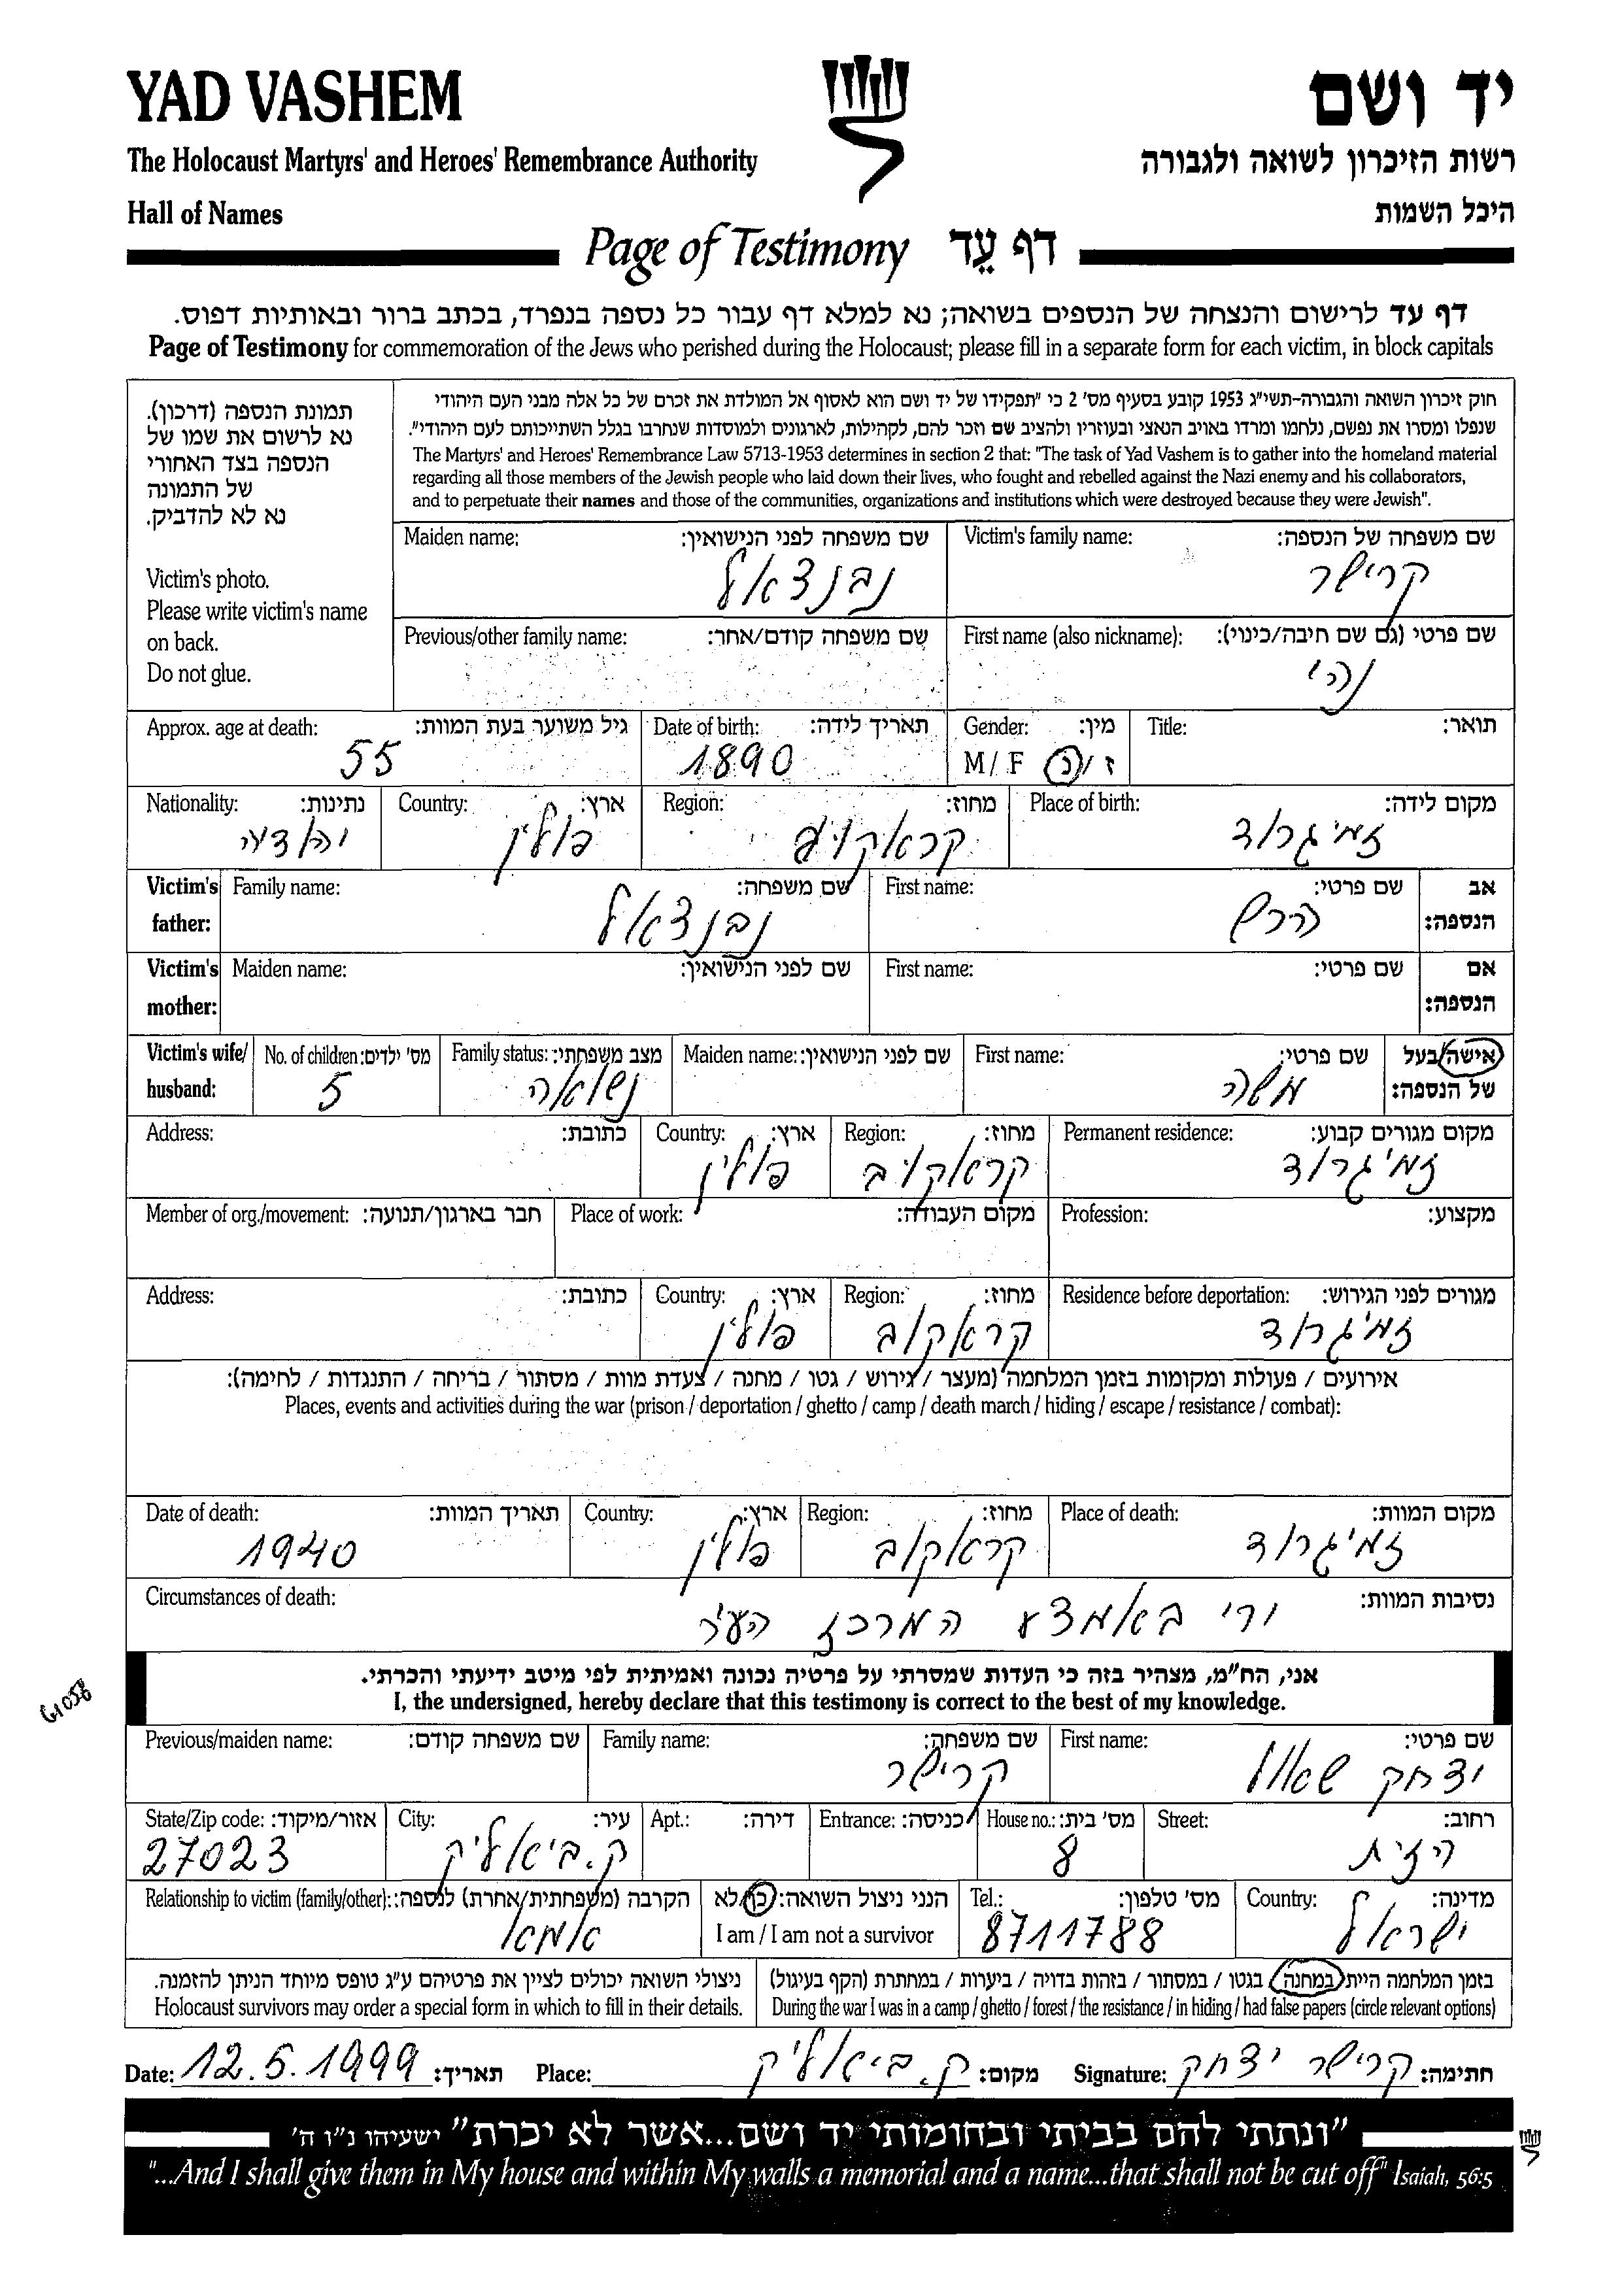 YAD VASHEM
יד ושם
The Holocaust Martyrs' and Heroes' Remembrance Authority
רשות הזיכרון לשואה ולגבורה
Hall of Names
היכל השמות
Page of Testimony דף עֵד
דף עד לרישום והנצחה של הנספים בשואה; נא למלא דף עבור כל נספה בנפרד, בכתב ברור ובאותיות דפוס.
Page of Testimony for commemoration of the Jews who perished during the Holocaust; please fill in a separate form for each victim, in block capitals
תמונת הנספה (דרכון).
נא לרשום את שמו של
הנספה בצד האחורי
של התמונה
נא לא להדביק.
Victim's photo.
Please write victim's name
on back.
Do not glue.
חוק זיכרון השואה והגבורה-תשי"ג 1953 קובע בסעיף מס' 2 כי "תפקידו של יד ושם הוא לאסוף אל המולדת את זכרם של כל אלה מבני העם היהודי
שנפלו ומסרו את נפשם, נלחמו ומרדו באויב הנאצי ובעוזריו ולהציב שם וזכר להם, לקהילות, לארגונים ולמוסדות שנחרבו בגלל השתייכותם לעם היהודי".
The Martyrs' and Heroes' Remembrance Law 5713-1953 determines in section 2 that: "The task of Yad Vashem is to gather into the homeland material
regarding all those members of the Jewish people who laid down their lives, who fought and rebelled against the Nazi enemy and his collaborators,
and to perpetuate their names and those of the communities, organizations and institutions which were destroyed because they were Jewish".
Victim's family name: שם משפחה של הנספה:
קרישר
Maiden name: שם משפחה לפני הנישואין:
נבנצאל
First name (also nickname): שם פרטי (גם שם חיבה/כינוי):
Previous/other family name: שם משפחה קודם/אחר:
Title: תואר:
Gender: מין:
M / F ז / נ
Date of birth: תאריך לידה:
1890
Approx. age at death: גיל משוער בעת המוות:
55
Place of birth: מקום לידה:
זמיגרוד
Region: מחוז:
קראקוב
Country: ארץ:
פולין
Nationality: נתינות:
Victim's father: אב הנספה:
First name: שם פרטי:
הרש
Family name: שם משפחה:
נבנצאל
Victim's mother: אם הנספה:
First name: שם פרטי:
Maiden name: שם לפני הנישואין:
Victim's wife/ husband: אישה/בעל של הנספה:
First name: שם פרטי:
משה
Maiden name: שם לפני הנישואין:
Family status: מצב משפחתי:
נשואה
No. of children: מס' ילדים:
5
Permanent residence: מקום מגורים קבוע:
זמיגרוד
Region: מחוז:
קראקוב
Country: ארץ:
פולין
Address: כתובת:
Profession: מקצוע:
Place of work: מקום העבודה:
Member of org./movement: חבר בארגון/תנועה:
Residence before deportation: מגורים לפני הגירוש:
זמיגרוד
Region: מחוז:
קראקוב
Country: ארץ:
פולין
Address: כתובת:
אירועים / פעולות ומקומות בזמן המלחמה (מעצר / גירוש / גטו / מחנה / צעדת מוות / מסתור / בריחה / התנגדות / לחימה):
Places, events and activities during the war (prison / deportation / ghetto / camp / death march / hiding / escape / resistance / combat):
Place of death: מקום המוות:
זמיגרוד
Region: מחוז:
קראקוב
Country: ארץ:
פולין
Date of death: תאריך המוות:
1940
Circumstances of death: נסיבות המוות:
ירי באמצע המרכז
אני, הח"מ, מצהיר בזה כי העדות שמסרתי על פרטיה נכונה ואמיתית לפי מיטב ידיעתי והכרתי.
I, the undersigned, hereby declare that this testimony is correct to the best of my knowledge.
First name: שם פרטי:
יצחק שאול
Family name: שם משפחה:
קרישר
Previous/maiden name: שם משפחה קודם:
Street: רחוב:
הזית
House no.: מס' בית:
8
Entrance: כניסה:
Apt.: דירה:
City: עיר:
ק. ביאליק
State/Zip code: אזור/מיקוד:
27023
Country: מדינה:
ישראל
Tel.: מס' טלפון:
8711788
הנני ניצול השואה: כן/לא
I am / I am not a survivor
Relationship to victim (family/other): הקרבה (משפחתית/אחרת) לנספה:
אמא
בזמן המלחמה הייתי במחנה / בגטו / במסתור / בזהות בדויה / ביערות / במחתרת (הקף בעיגול)
During the war I was in a camp / ghetto / forest / the resistance / in hiding / had false papers (circle relevant options)
ניצולי השואה יכולים לציין את פרטיהם ע"ג טופס מיוחד הניתן להזמנה.
Holocaust survivors may order a special form in which to fill in their details.
Date: 12.5.1999 תאריך: Place: ק. ביאליק מקום: Signature: קרישר יצחק חתימה:
"ונתתי להם בביתי ובחומותי יד ושם...אשר לא יכרת" ישעיהו נ"ו ה'
"...And I shall give them in My house and within My walls a memorial and a name...that shall not be cut off" Isaiah, 56:5